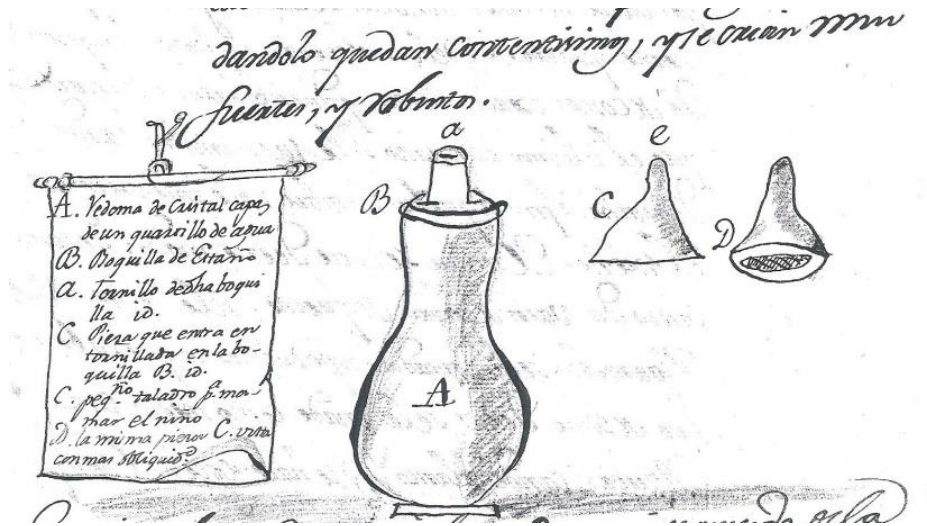 dandolo quedan contentisimos, y se crian mui
fuertes, y robustos.
a
e
B
C
D
A
A. Redoma de Cristal capaz
de un quartillo de agua
B. Boquilla de Estaño
a. tornillo de dha boqui
lla id.
C Pieza que entra en
tornillada en la bo-
quilla B. id.
C. peqño. taladro pa. ma-
mar el niño
D. la misma pieza C. vista
con mas obliquidd.